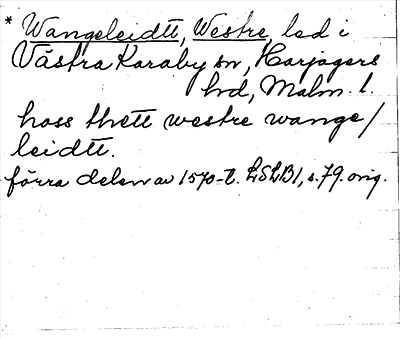 * Wangeleidtt, Westre, led i
Västra Karaby sn, Harjagers
hd, Malm. l.
hoss thett westre wange/
leidtt.
förra delen av 1570-t. LSLB1, s. 79. orig.